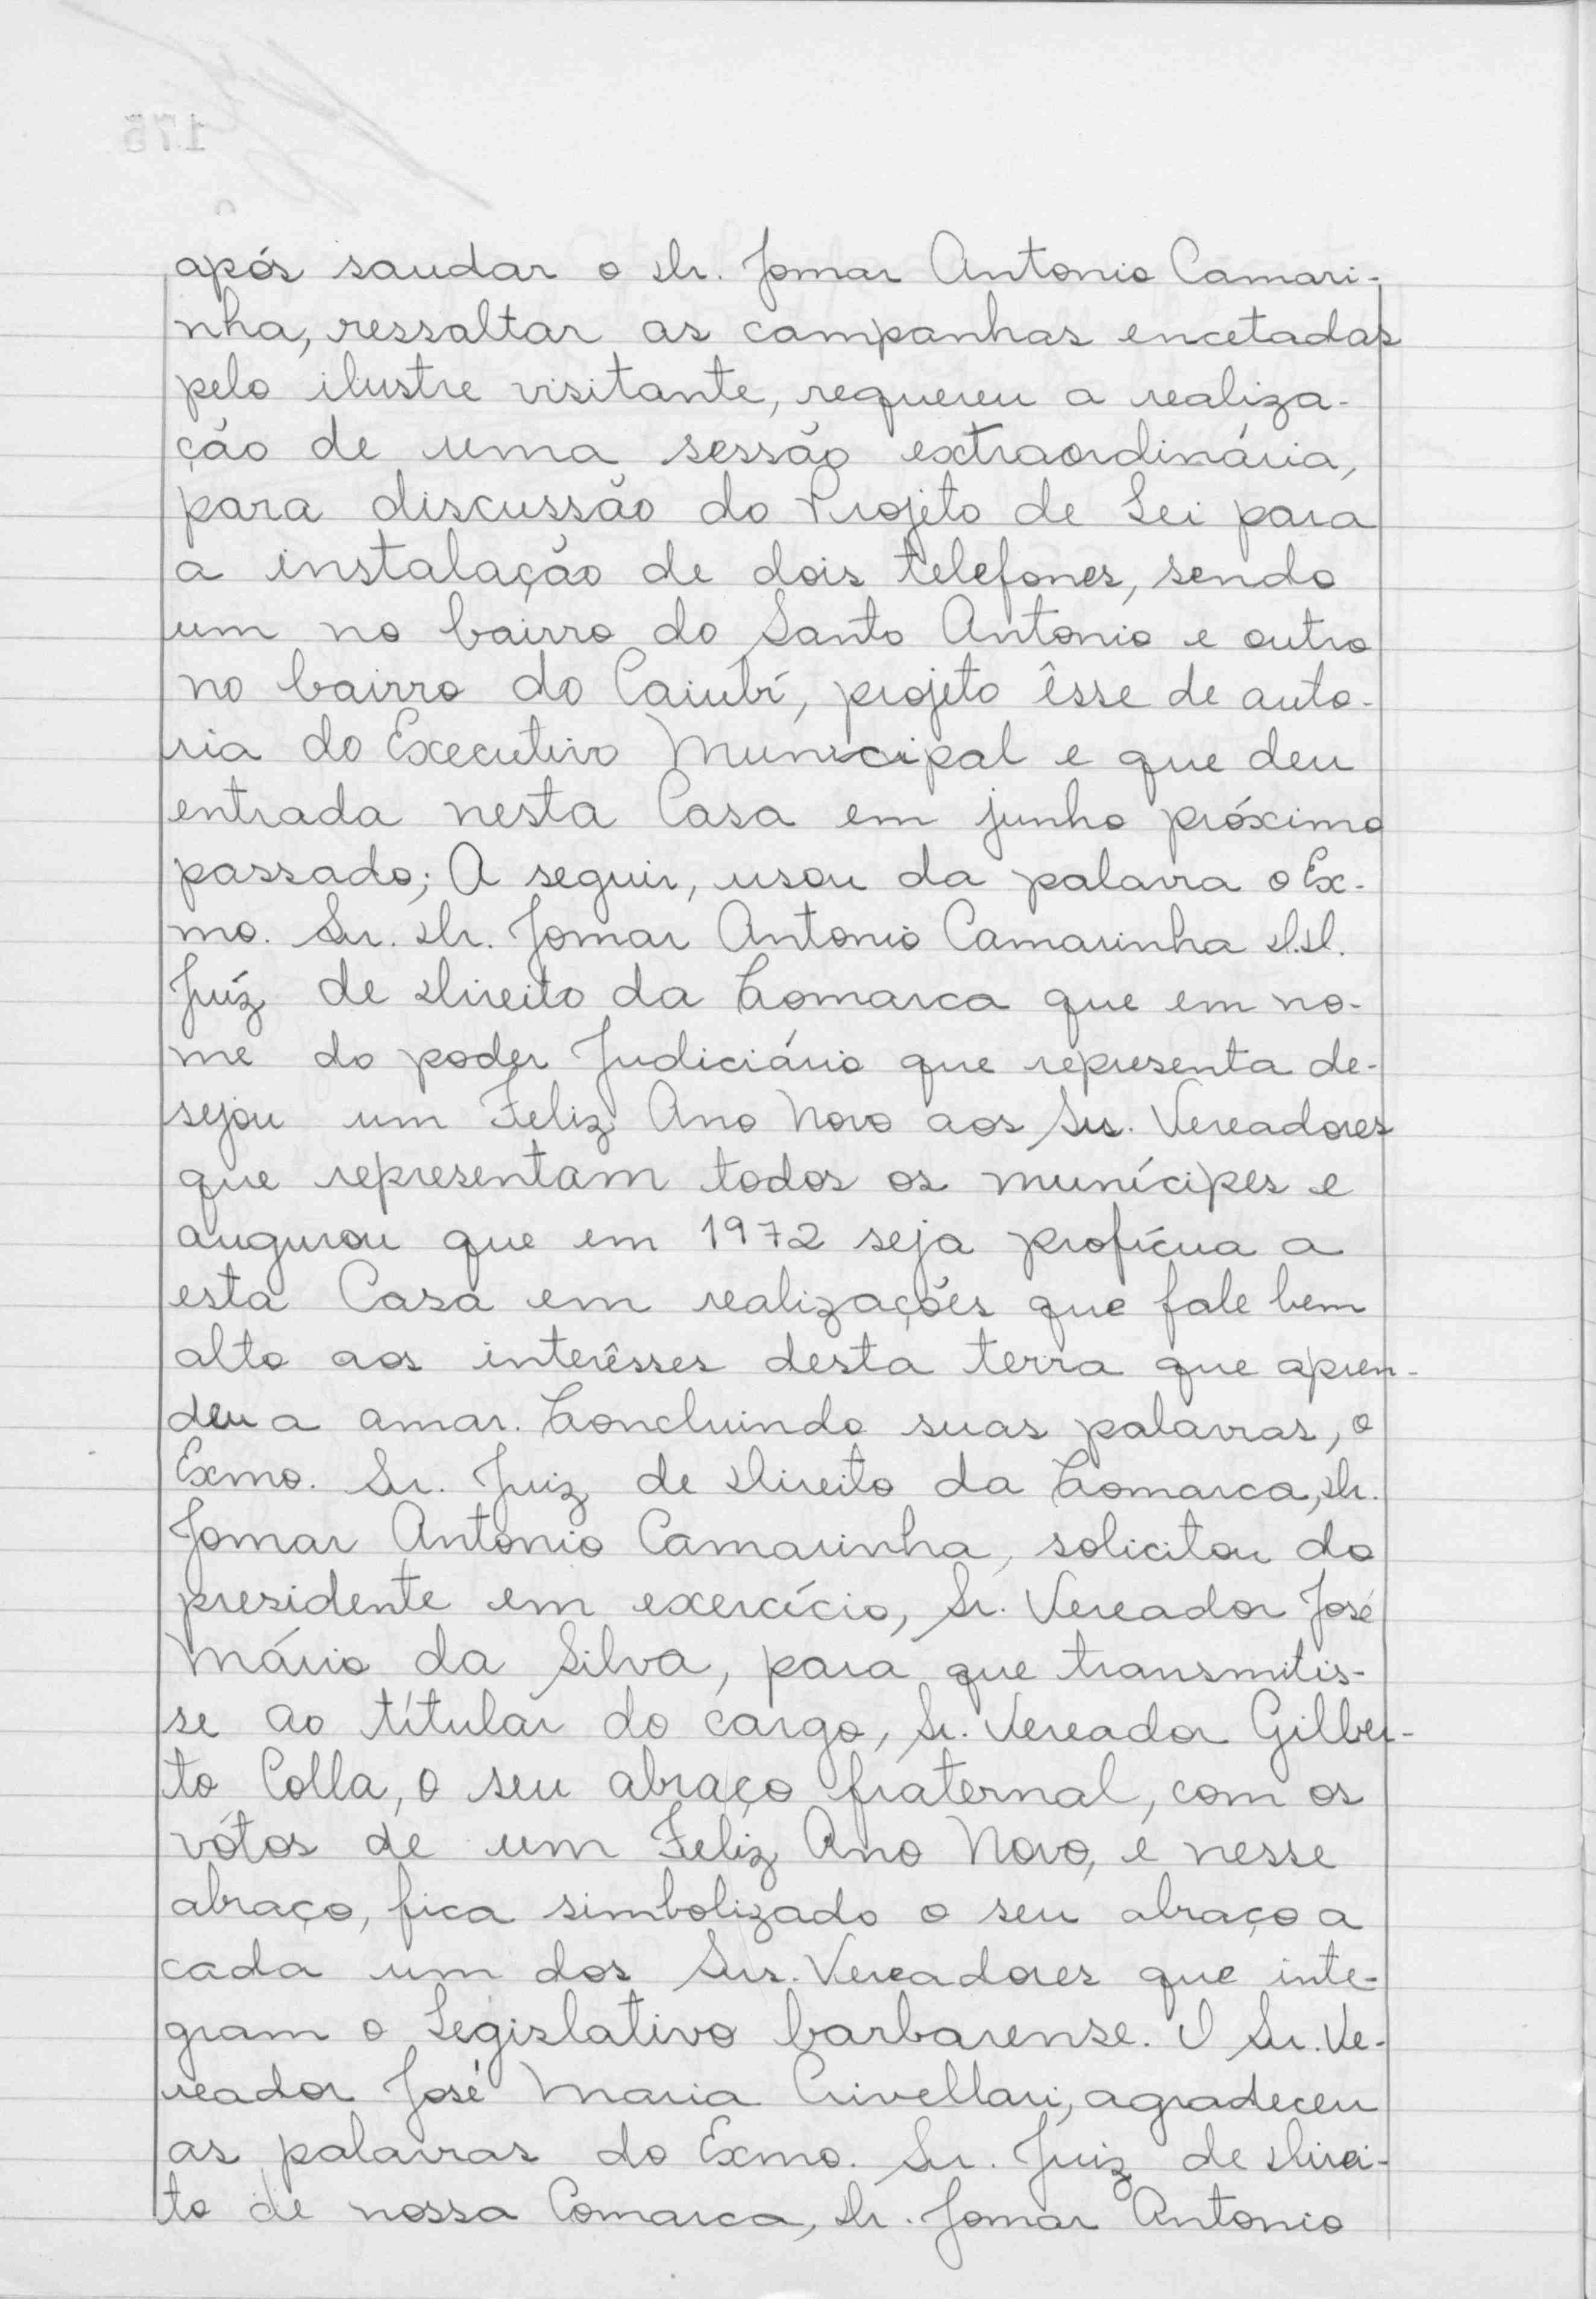 após saudar o Dr. Jomar Antonio Camari-
nha, ressaltar as campanhas encetadas
pelo ilustre visitante, requereu a realiza-
ção de uma sessão extraordinária,
para discussão do Projeto de Lei para
a instalação de dois telefones, sendo
um no bairro do Santo Antonio e outro
no bairro do Caiubí, projeto êsse de auto-
ria do Executivo Municipal e que deu
entrada nesta Casa em junho próximo
passado; A seguir, usou da palavra o Ex-
mo. Sr. Dr. Jomar Antonio Camarinha D.D.
Juíz de Direito da Comarca que em no-
me do poder Judiciário que representa de-
sejou um Feliz Ano Novo aos Srs. Vereadores
que representam todos os munícipes e
augurou que em 1972 seja profícua a
esta Casa em realizações que fale bem
alto aos interêsses desta terra que apren-
deu a amar. Concluindo suas palavras, o
Exmo. Sr. Juiz de Direito da Comarca, Dr.
Jomar Antonio Camarinha, solicitou do
presidente em exercício, Sr. Vereador José
Mário da Silva, para que transmitis-
se ao títular do cargo, Sr. Vereador Gilber-
to Colla, o seu abraço fraternal, com os
vótos de um Feliz Ano Novo, e nesse
abraço, fica simbolizado o seu abraço a
cada um dos Srs. Vereadores que inte-
gram o Legislativo barbarense. O Sr. Ve-
reador José Maria Crivellari, agradeceu
as palavras do Exmo. Sr. Juiz de Direi-
to de nossa Comarca, Dr. Jomar Antonio